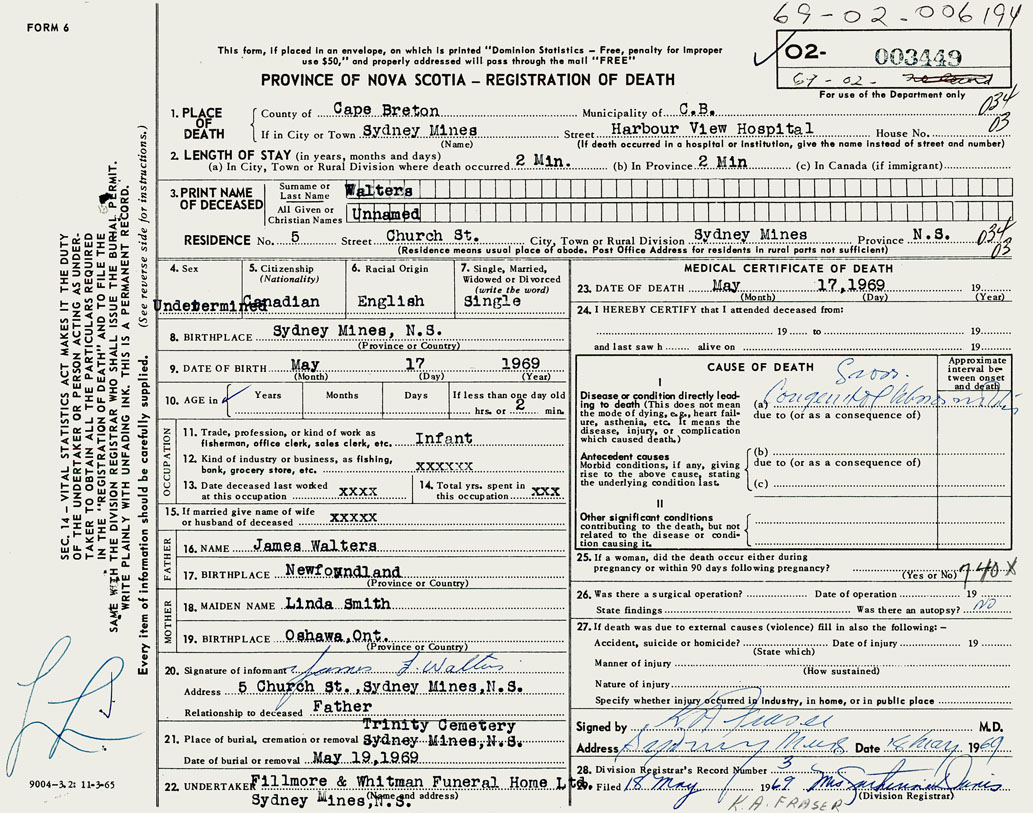 FORM 6
69-02-006194
This form, if placed in an envelope, on which is printed "Dominion Statistics – Free, penalty for improper
use $50," and properly addressed will pass through the mail "FREE"
PROVINCE OF NOVA SCOTIA – REGISTRATION OF DEATH
02- 003449
67-02-
For use of the Department only
034
03
1. PLACE OF DEATH County of Cape Breton Municipality of C.B.
If in City or Town Sydney Mines Street Harbour View Hospital House No.
(Name) (If death occurred in a hospital or institution, give the name instead of street and number)
2. LENGTH OF STAY (in years, months and days)
(a) In City, Town or Rural Division where death occurred 2 Min. (b) In Province 2 Min (c) In Canada (if immigrant)
3. PRINT NAME OF DECEASED Surname or Last Name Walters
All Given or Christian Names Unnamed
RESIDENCE No. 5 Street Church St. City, Town or Rural Division Sydney Mines Province N.S.
(Residence means usual place of abode. Post Office Address for residents in rural parts not sufficient)
034
03
4. Sex Undetermined
5. Citizenship (Nationality) Canadian
6. Racial Origin English
7. Single, Married, Widowed or Divorced (write the word) Single
8. BIRTHPLACE Sydney Mines, N.S.
(Province or Country)
9. DATE OF BIRTH May 17 1969
(Month) (Day) (Year)
10. AGE in Years Months Days If less than one day old
hrs. or 2 min.
OCCUPATION
11. Trade, profession, or kind of work as
fisherman, office clerk, sales clerk, etc. Infant
12. Kind of industry or business, as fishing,
bank, grocery store, etc. xxxxxx
13. Date deceased last worked
at this occupation xxxx
14. Total yrs. spent in
this occupation xxx
15. If married give name of wife
or husband of deceased xxxxx
FATHER
16. NAME James Walters
17. BIRTHPLACE Newfoundland
(Province or Country)
MOTHER
18. MAIDEN NAME Linda Smith
19. BIRTHPLACE Oshawa,Ont.
(Province or Country)
20. Signature of informant James F. Walters
Address 5 Church St.,Sydney Mines,N.S.
Relationship to deceased Father
Trinity Cemetery
21. Place of burial, cremation or removal Sydney Mines,N.S.
Date of burial or removal May 19,1969
22. UNDERTAKER Fillmore & Whitman Funeral Home Ltd.
(Name and address)
Sydney Mines,N.S.
MEDICAL CERTIFICATE OF DEATH
23. DATE OF DEATH May 17,1969 19
(Month) (Day) (Year)
24. I HEREBY CERTIFY that I attended deceased from:
19 to 19
and last saw h alive on 19
CAUSE OF DEATH
Approximate interval between onset and death
I
Disease or condition directly leading to death (This does not mean the mode of dying, e.g., heart failure, asthenia, etc. It means the disease, injury, or complication which caused death.)
(a) Congenital Abnormalities
due to (or as a consequence of)
Antecedent causes
Morbid conditions, if any, giving rise to the above cause, stating the underlying condition last.
(b)
due to (or as a consequence of)
(c)
II
Other significant conditions
contributing to the death, but not related to the disease or condition causing it.
25. If a woman, did the death occur either during
pregnancy or within 90 days following pregnancy?
(Yes or No)
740x
26. Was there a surgical operation? Date of operation 19
State findings Was there an autopsy? NO
27. If death was due to external causes (violence) fill in also the following: –
Accident, suicide or homicide? Date of injury 19
(State which)
Manner of injury
(How sustained)
Nature of injury
Specify whether injury occurred in industry, in home, or in public place
Signed by K.A. Fraser M.D.
Address Sydney Mines Date May 1969
28. Division Registrar's Record Number 3
29. Filed 18 May 1969
(Division Registrar)
K.A. FRASER
SEC. 14 – VITAL STATISTICS ACT MAKES IT THE DUTY
OF THE UNDERTAKER OR PERSON ACTING AS UNDER-
TAKER TO OBTAIN ALL THE PARTICULARS REQUIRED
IN THE "REGISTRATION OF DEATH" AND TO FILE THE
SAME WITH THE DIVISION REGISTRAR WHO SHALL ISSUE THE BURIAL PERMIT.
WRITE PLAINLY WITH UNFADING INK. THIS IS A PERMANENT RECORD.
Every item of information should be carefully supplied. (See reverse side for instructions.)
9004-3.2: 11-3-65